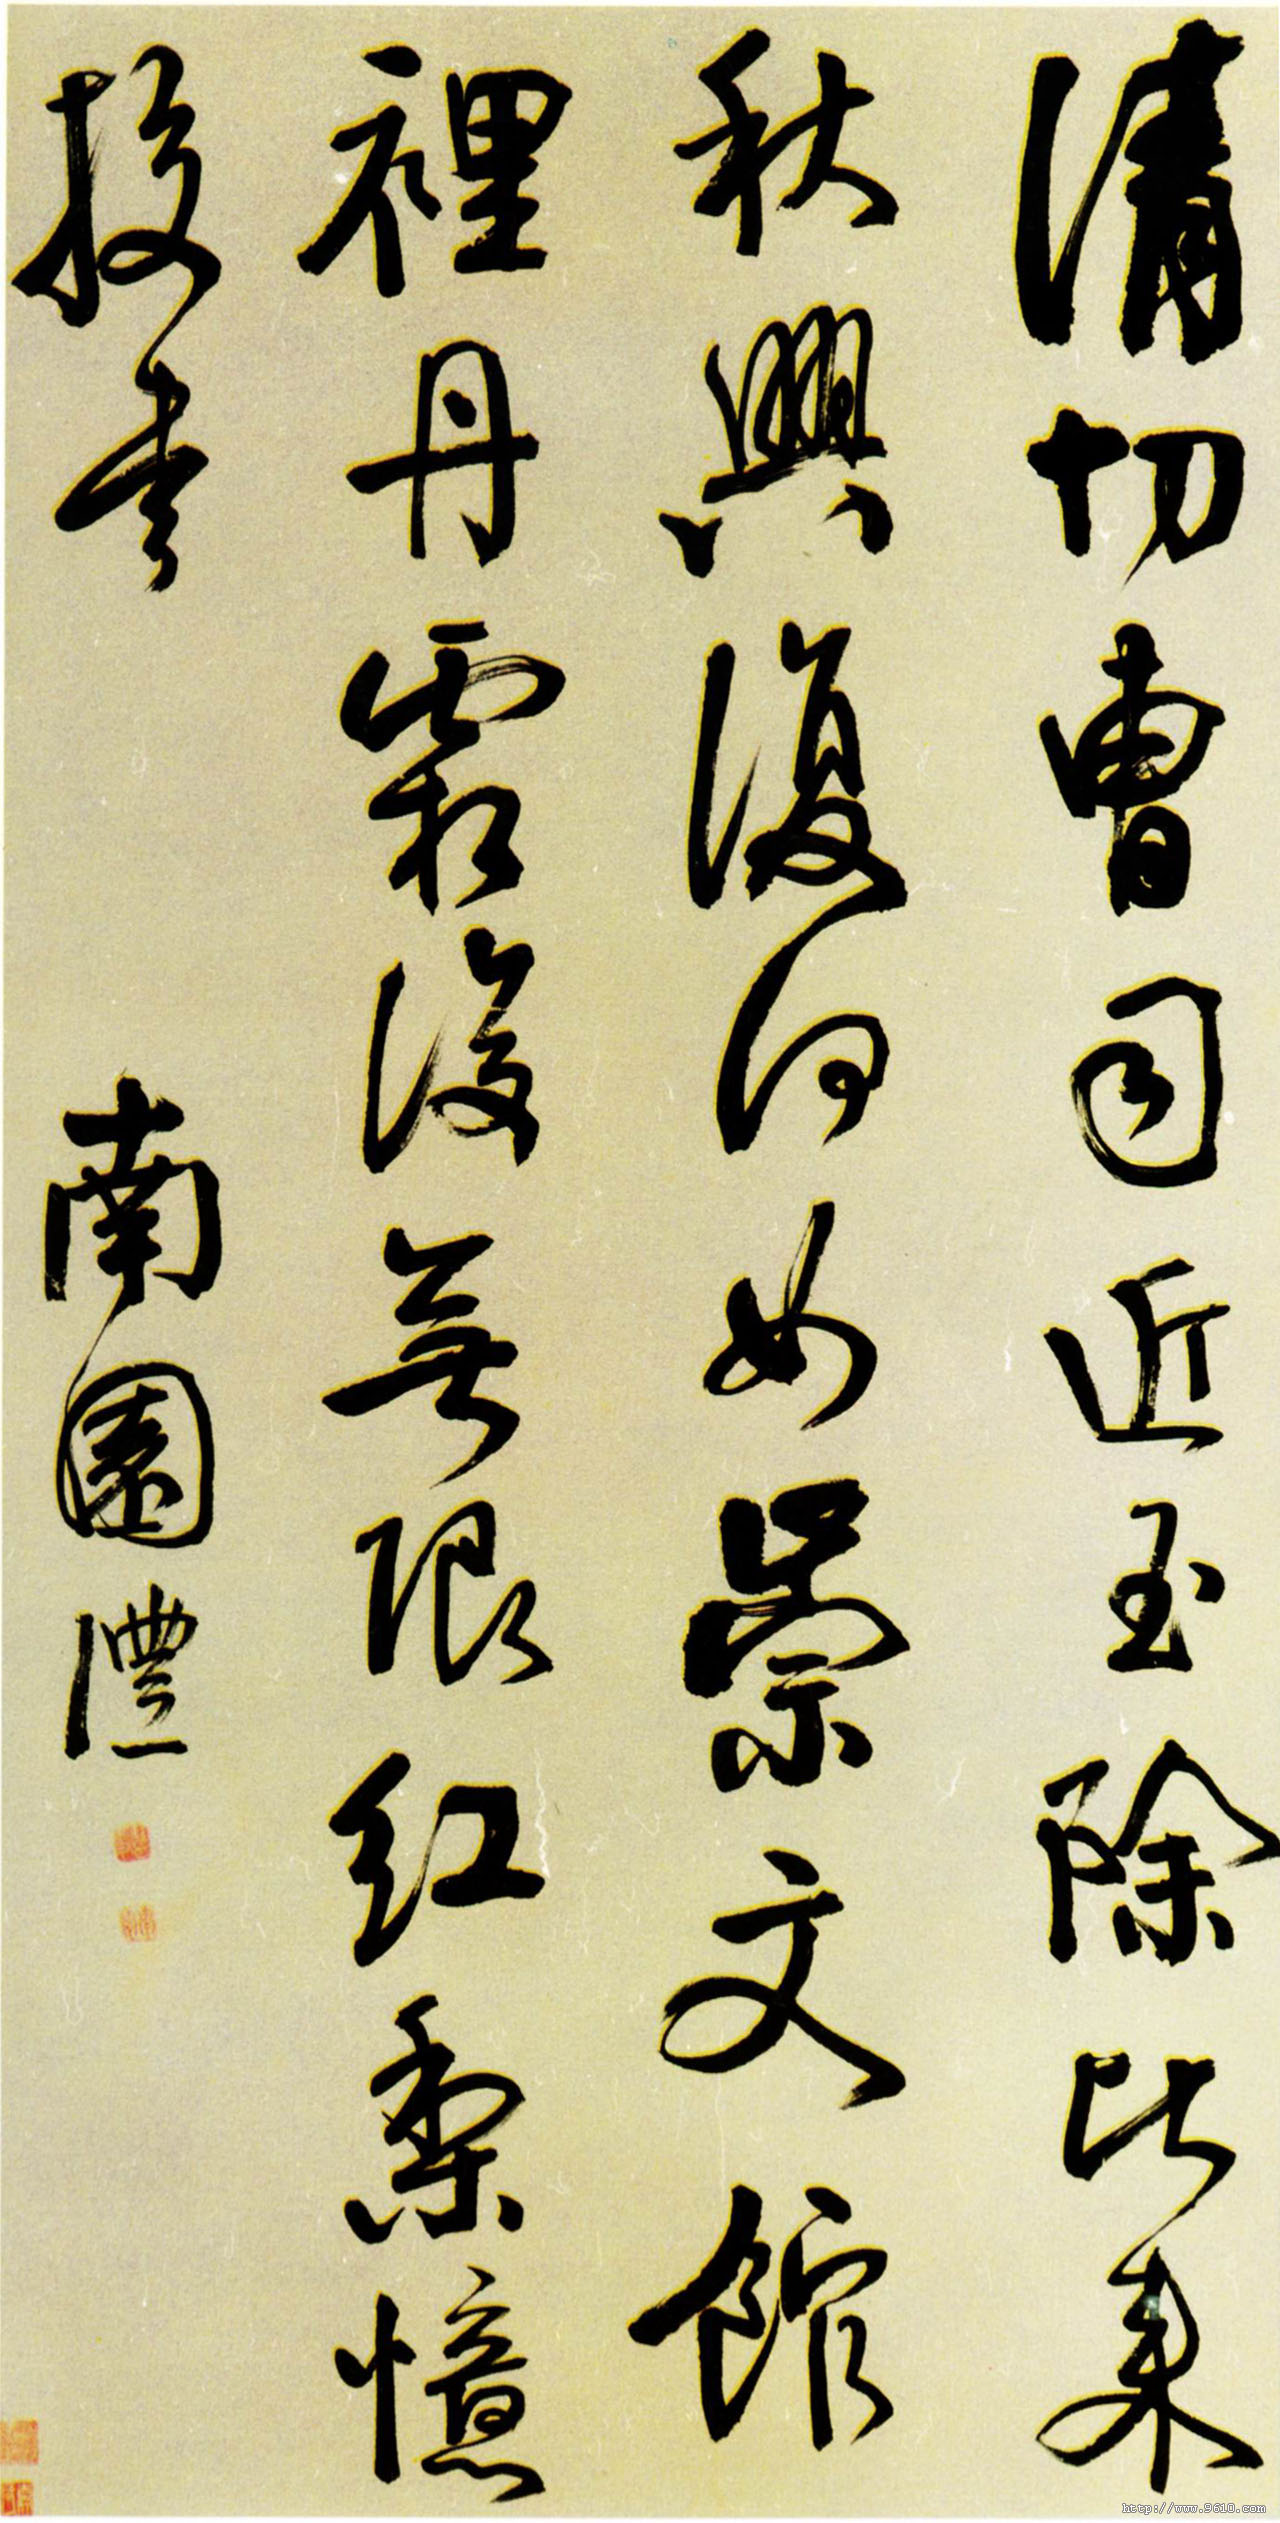 清切曹司近玉除比來
秋興復何如崇文館
裡丹霜後無限紅梨憶
校書
南園灃
http://www.9610.com